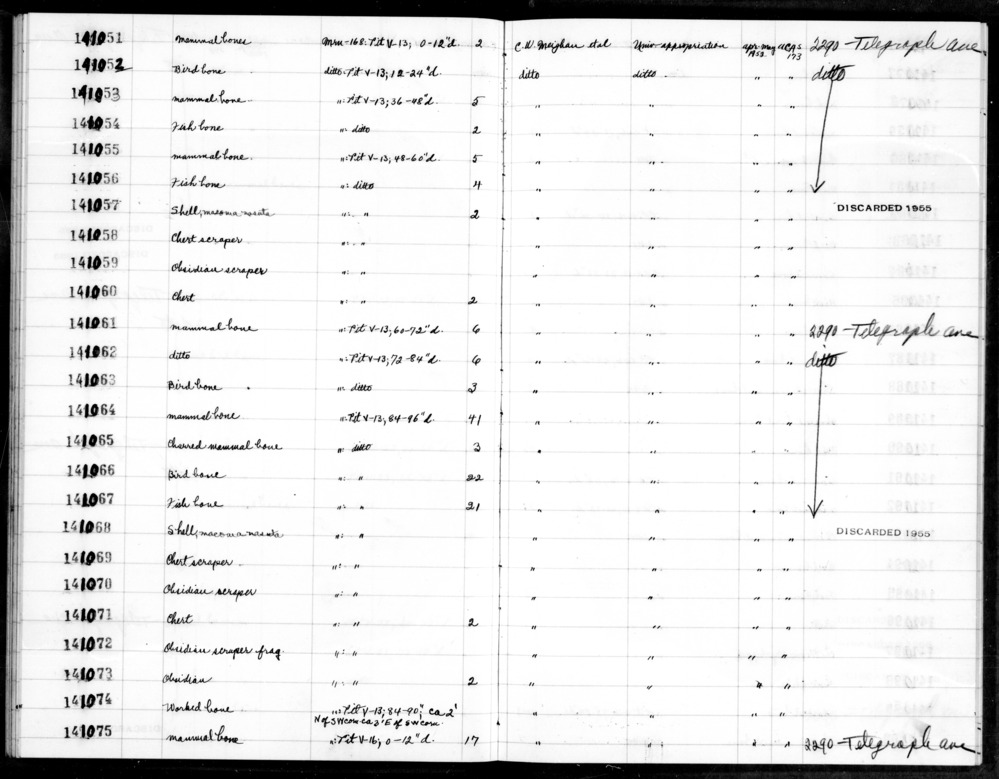 141051 Mammal bones Mrn-168: Pit V-13; 0-12"d. 2 C.W. Meighan etal Univ. appropriation Apr-May 1953 UCAS 173 2290 - Telegraph Ave
141052 Bird bone ditto: Pit V-13; 12-24"d. ditto ditto " " ditto
141053 Mammal bone ": Pit V-13; 36-48"d. 5 " " " "
141054 Fish bone ": ditto 2 " " " "
141055 Mammal bone ": Pit V-13; 48-60"d. 5 " " " "
141056 Fish bone ": ditto 4 " " " "
141057 Shell, macoma nasuta ": " 2 " " " " DISCARDED 1955
141058 Chert scraper ": " " " " "
141059 Obsidian scraper ": " " " " "
141060 Chert ": " 2 " " " "
141061 Mammal bone ": Pit V-13; 60-72"d. 6 " " " " 2290 - Telegraph Ave
141062 ditto ": Pit V-13; 72-84"d. 6 " " " " ditto
141063 Bird bone ": ditto 3 " " " "
141064 Mammal bone ": Pit V-13; 84-96"d. 41 " " " "
141065 Charred mammal bone ": ditto 3 " " " "
141066 Bird bone ": " 22 " " " "
141067 Fish bone ": " 21 " " " "
141068 Shell, macoma nasuta ": " " " " " DISCARDED 1955
141069 Chert scraper ": " " " " "
141070 Obsidian scraper ": " " " " "
141071 Chert ": " 2 " " " "
141072 Obsidian scraper frag. ": " " " " "
141073 Obsidian ": " 2 " " " "
141074 Worked bone ": Pit V-13; 84-90"; ca 2' " " " "
N of SW corn - ca 3' E of SW corn.
141075 Mammal bone ": Pit V-16; 0-12"d. 17 " " " " 2290 - Telegraph Ave